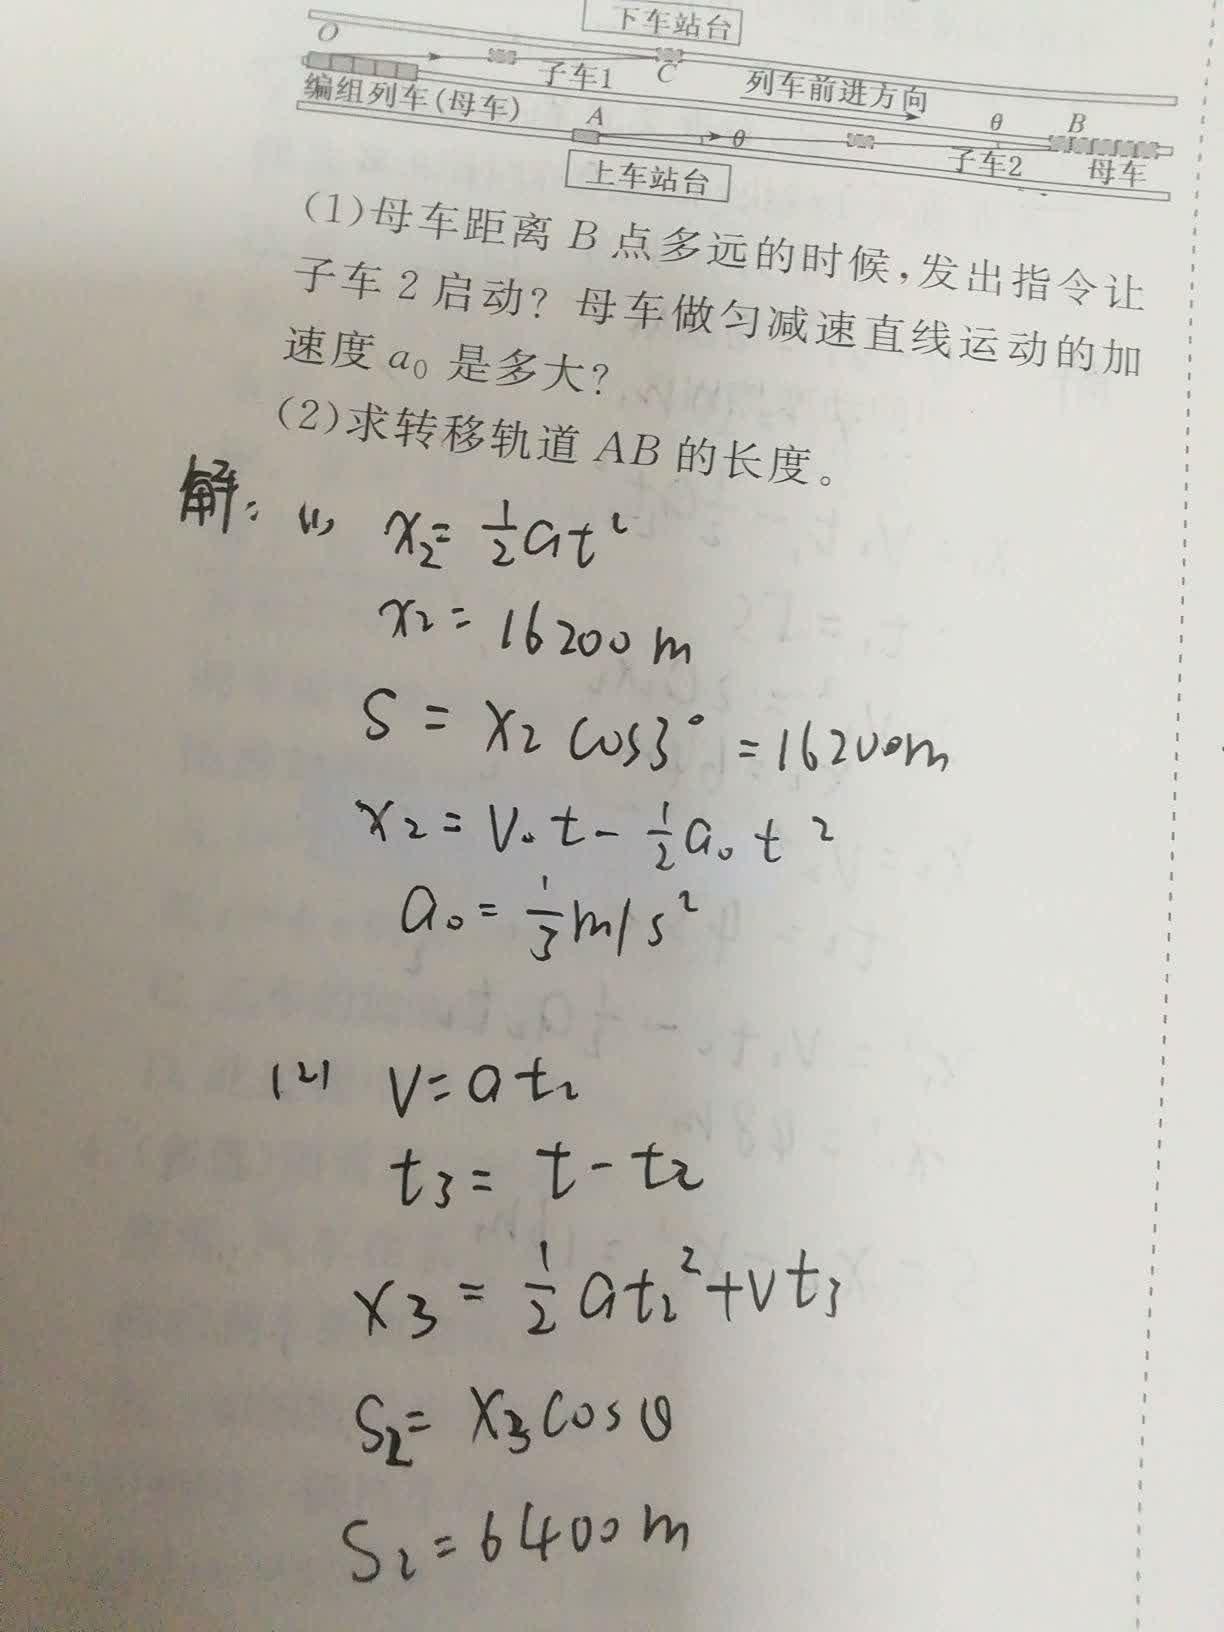 下车站台
O
子车1
C
列车前进方向
编组列车(母车)
A
θ
θ
B
子车2
母车
上车站台
(1)母车距离B点多远的时候,发出指令让
子车2启动?母车做匀减速直线运动的加
速度a₀是多大?
(2)求转移轨道AB的长度。
解: (1) x₂=½at²
x₂=16200m
S=x₂cos3°=16200m
x₂=V₀t-½a₀t²
a₀=⅓m/s²
(2) V=at₂
t₃=t-t₂
x₃=½at₂²+Vt₃
S₂=x₃cosθ
S₂=6400m